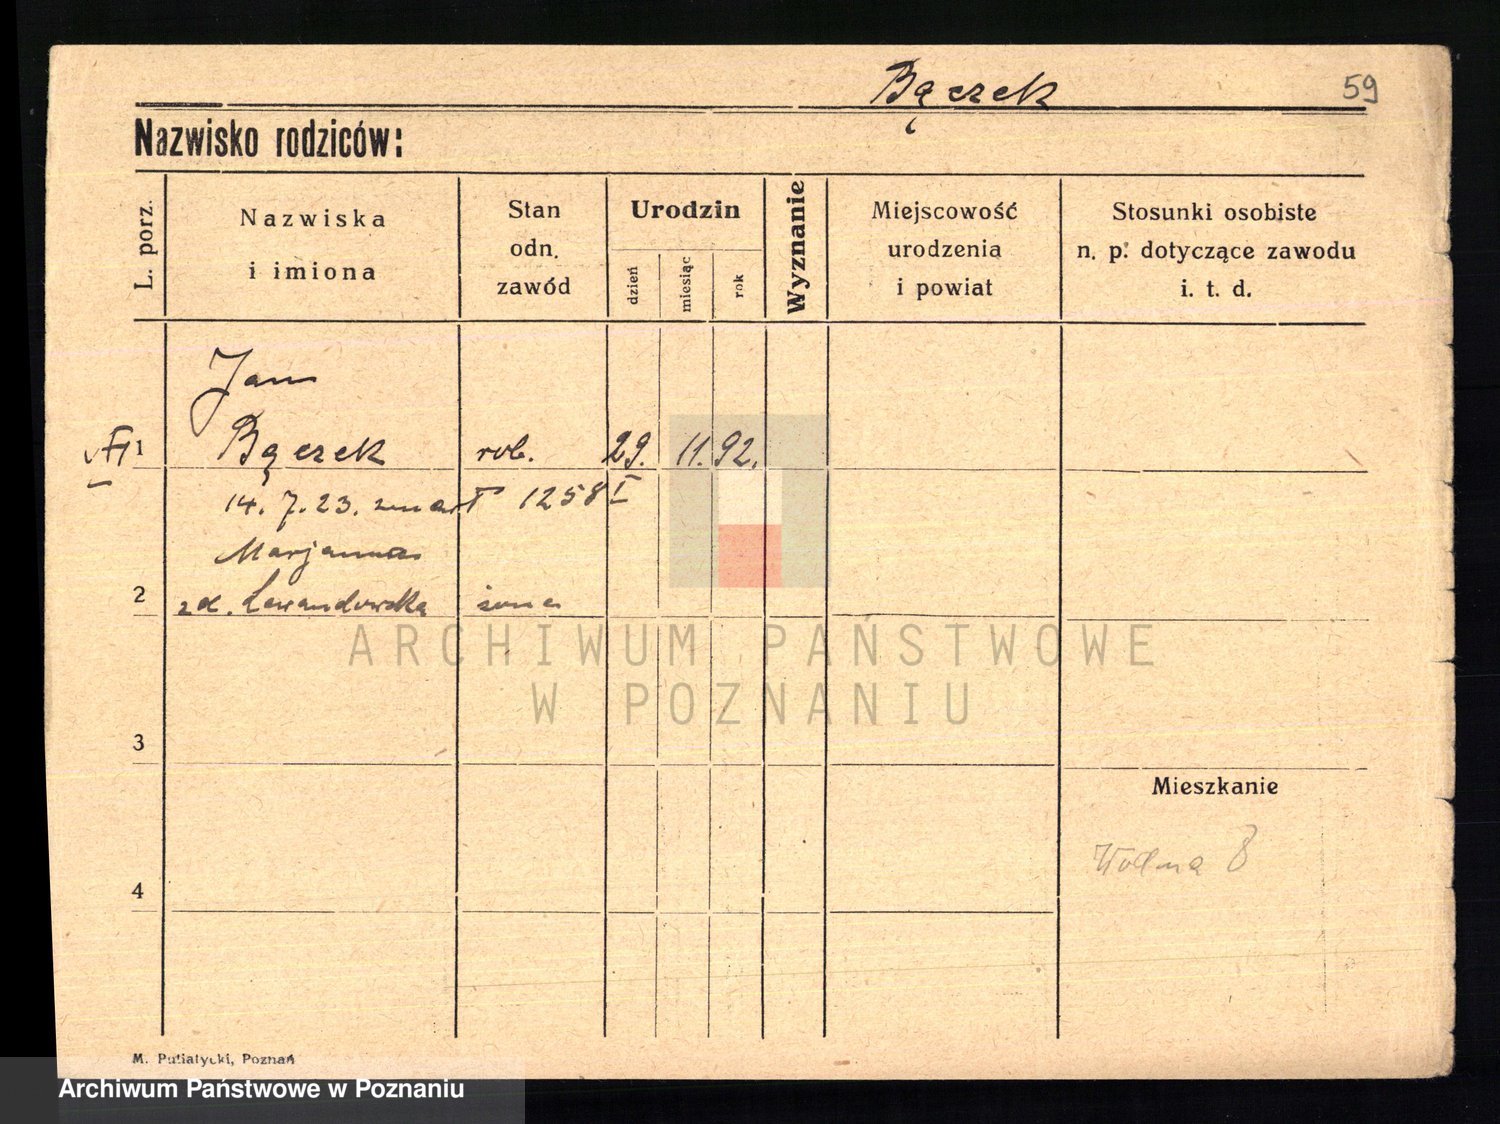 Bączek 59
Nazwisko rodziców:
L. porz.
Nazwiska
i imiona
Stan
odn.
zawód
Urodzin
dzień
miesiąc
rok
Wyznanie
Miejscowość
urodzenia
i powiat
Stosunki osobiste
n. p. dotyczące zawodu
i. t. d.
Jan
1 Bączek rob. 29. 11. 92.
14. 7. 23. zmarł 1258 I
Marjanna
2 zd. Lewandowska żona
3
Mieszkanie
Wolna 8
4
M. Putiatycki, Poznań
ARCHIWUM PAŃSTWOWE
W POZNANIU
Archiwum Państwowe w Poznaniu